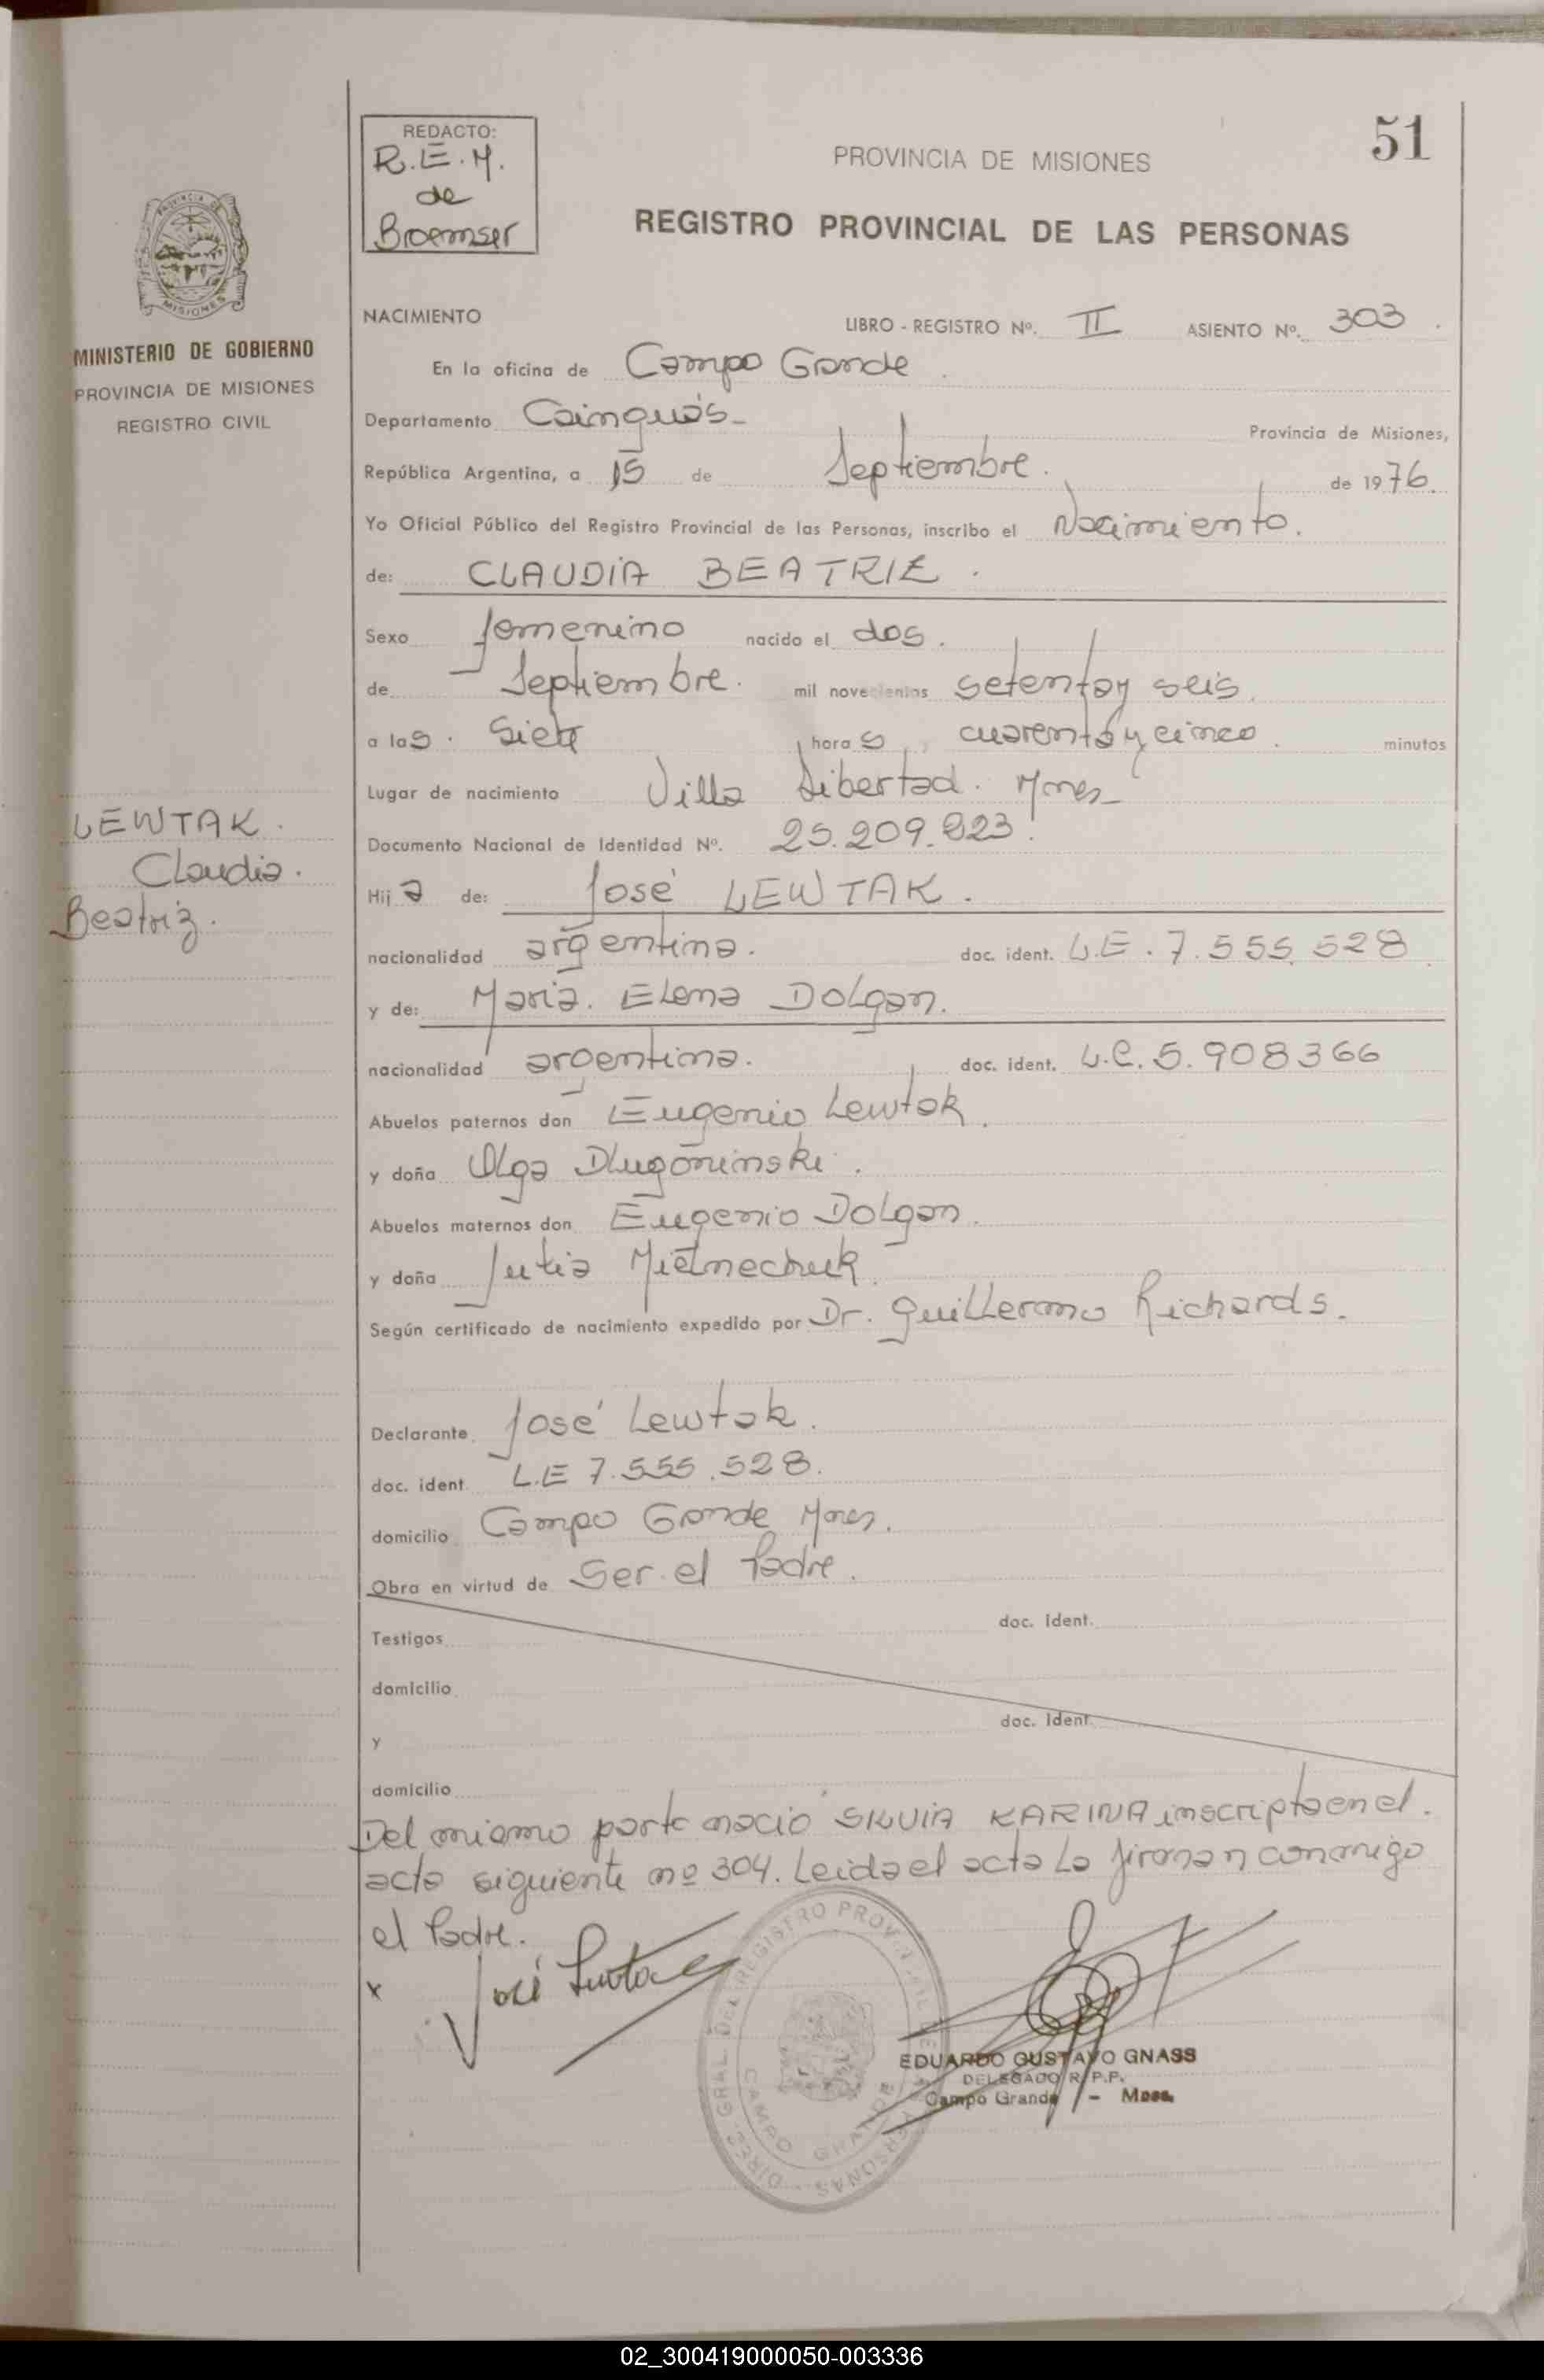 REDACTO:
R.E.M.
de
Broemser
51
PROVINCIA DE MISIONES
REGISTRO PROVINCIAL DE LAS PERSONAS
MISIONES
MINISTERIO DE GOBIERNO
PROVINCIA DE MISIONES
REGISTRO CIVIL
NACIMIENTO
LIBRO - REGISTRO Nº. II ASIENTO Nº. 303
En la oficina de Campo Grande
Departamento Cainguás- Provincia de Misiones,
República Argentina, a 15 de Septiembre. de 1976
Yo Oficial Público del Registro Provincial de las Personas, inscribo el Nacimiento.
de: CLAUDIA BEATRIZ.
Sexo femenino nacido el dos.
de Septiembre. mil novecientos setenta y seis.
a las. Siete horas cuarenta y cinco. minutos
Lugar de nacimiento Villa Libertad. Mnes
LEWTAK.
Claudia.
Beatriz.
Documento Nacional de Identidad Nº. 25.209.823.
Hija de: José LEWTAK.
nacionalidad argentina. doc. ident. L.E. 7.555.528
y de: Maria. Elena DOLgan.
nacionalidad argentina. doc. ident. L.C. 5.908366
Abuelos paternos don Eugenio Lewtak.
y doña Olga
Abuelos maternos don Eugenio DoLgan.
y doña Julia Mielnechuk.
Según certificado de nacimiento expedido por Dr. Guillermo Richards.
Declarante José Lewtak.
doc. ident. L.E 7.555.528.
domicilio Campo Grande Mnes.
Obra en virtud de Ser el Padre.
Testigos doc. ident.
domicilio
y doc. ident.
domicilio
Del mismo parto nació SILVIA KARINA inscripta en el.
acta siguiente nº 304. Leida el acta La firman conmigo
el Padre.
x José Lewtak
DIREC. GRAL. DEL REGISTRO PROVINCIAL DE LAS PERSONAS
CAMPO GRANDE
EDUARDO GUSTAVO GNASS
DELEGADO R.P.P.
Campo Grande - Mnes.
02_300419000050-003336